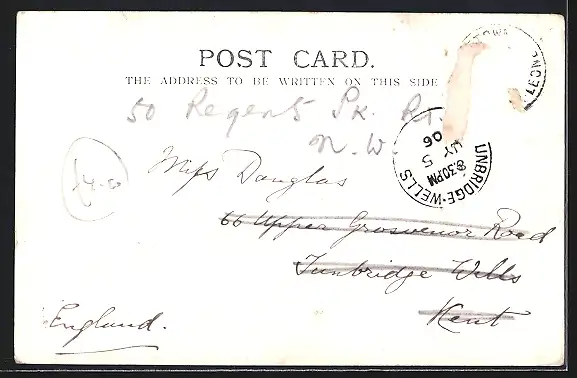 POST CARD.
THE ADDRESS TO BE WRITTEN ON THIS SIDE
50 Regents Pk. Rd.
N.W.
Miss Douglas
66 Upper Grosvenor Road
Tunbridge Wells
Kent
England.
TOWN
LEONE
UNBRIDGE·WELLS
8.30PM
MY 5
06